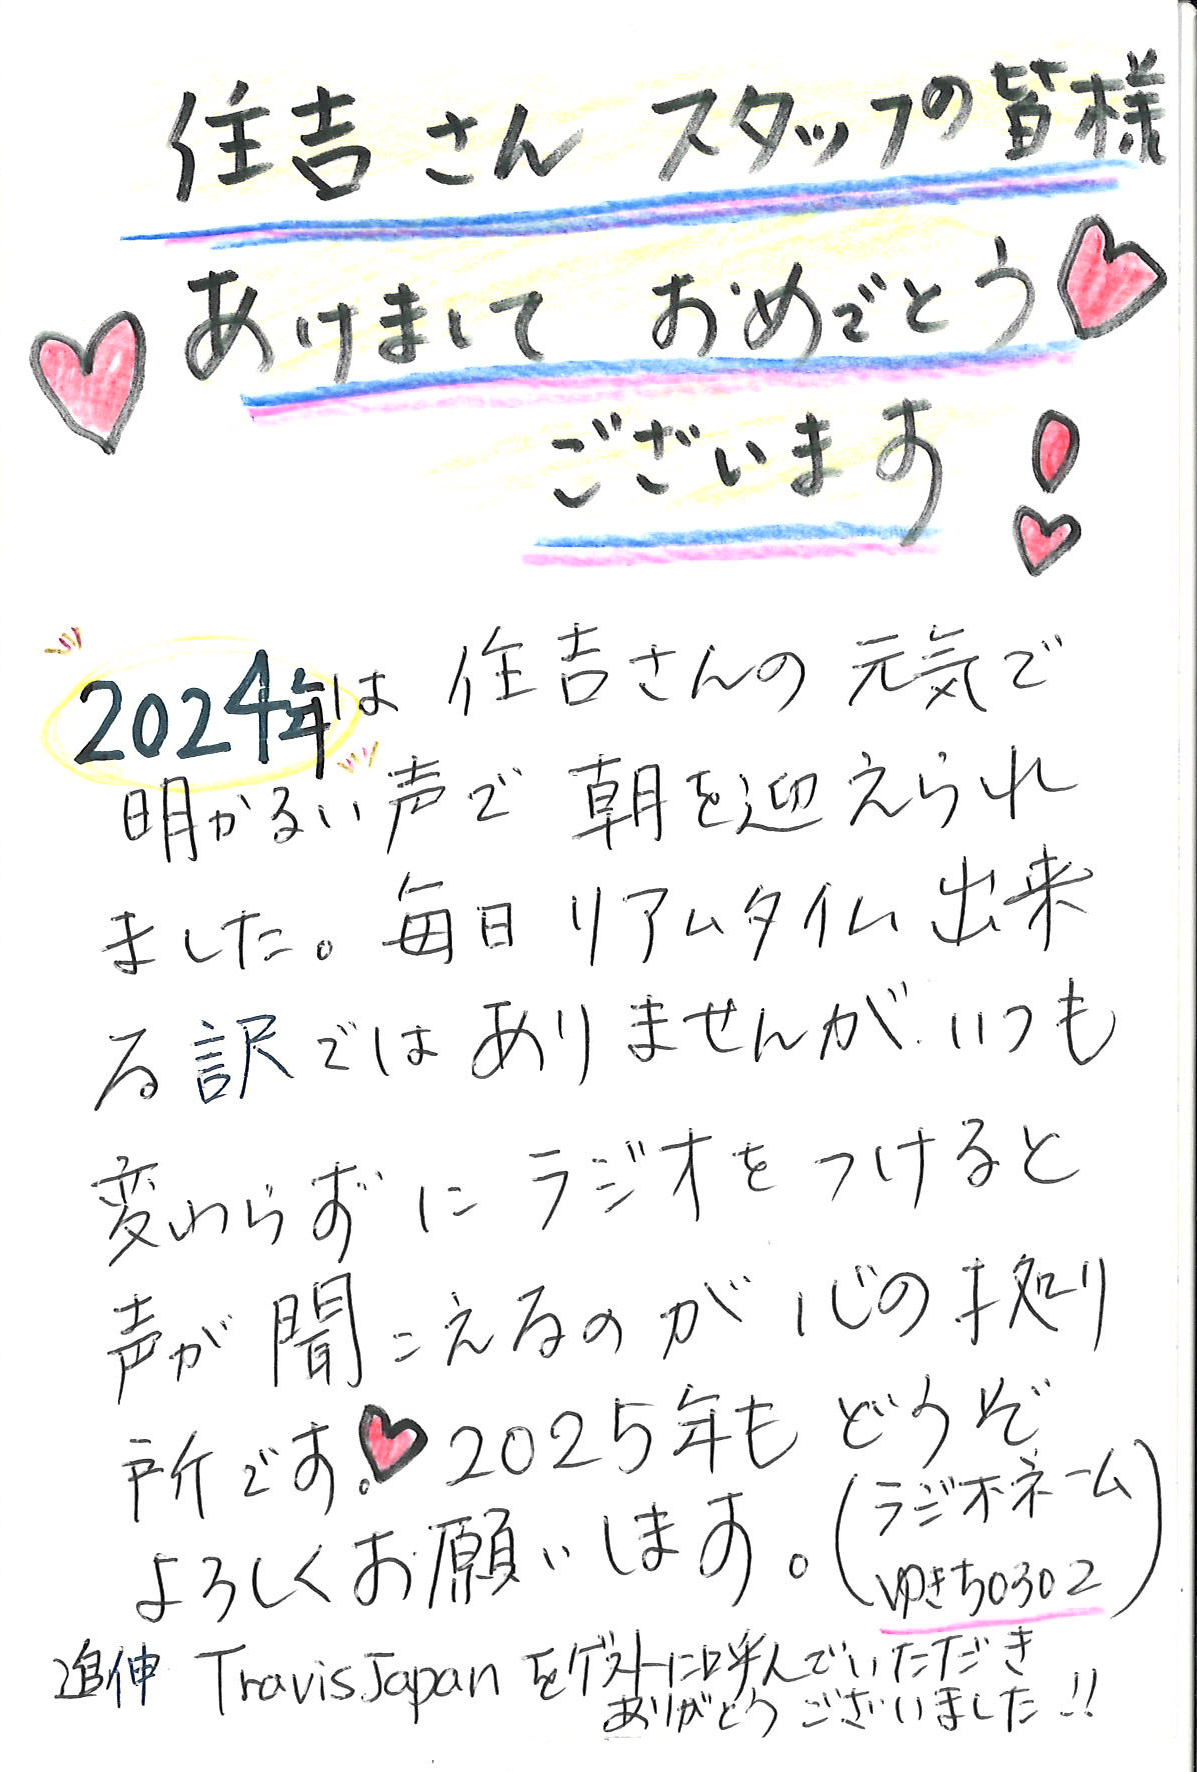 住吉さん スタッフの皆様
あけまして おめでとう
ございます
2024年は 住吉さんの 元気で
明かるい声で 朝を迎えられ
ました。毎日 リアムタイム 出来
る訳ではありませんが いつも
変わらずに ラジオをつけると
声が聞こえるのが心の拠り
所です。2025年も どうぞ
よろしくお願いします。
(ラジオネーム
ゆきち0302)
追伸 TravisJapanをゲストに呼んでいただき
ありがとうございました!!